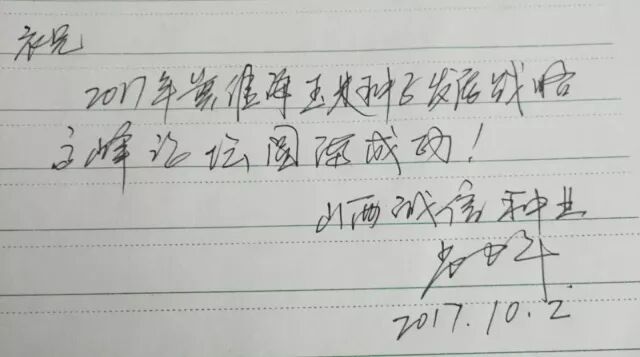 祝兄
2017年黄淮海玉米种子发展战略
高峰论坛圆满成功!
山西诚信种业
2017.10.2